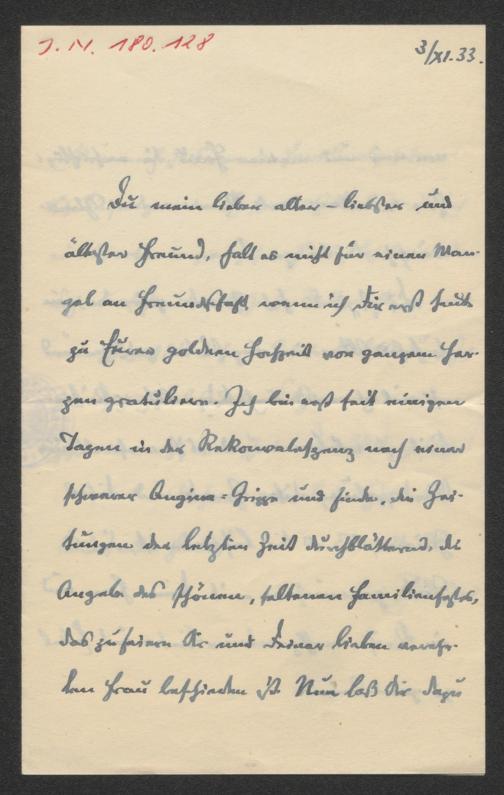 I. N. 180.128
3/XI.33.
Du mein lieber alter – liebster und
ältester Freund, halt es nicht für einen Man-
gel an Freundschaft wenn ich Dir erst heute
zu Eurer goldnen Hochzeit von ganzem Her-
zen gratuliere. Ich bin erst seit einigen
Tagen in der Rekonvaleszenz nach einer
schweren Angina-Grippe und finde, die Zei-
tungen der letzten Zeit durchblätternd, die
Angabe des schönen, seltenen Familienfestes,
das zu feiern Dir und Deiner lieben verehr-
ten Frau beschieden ist. Nun laß Dir dazu